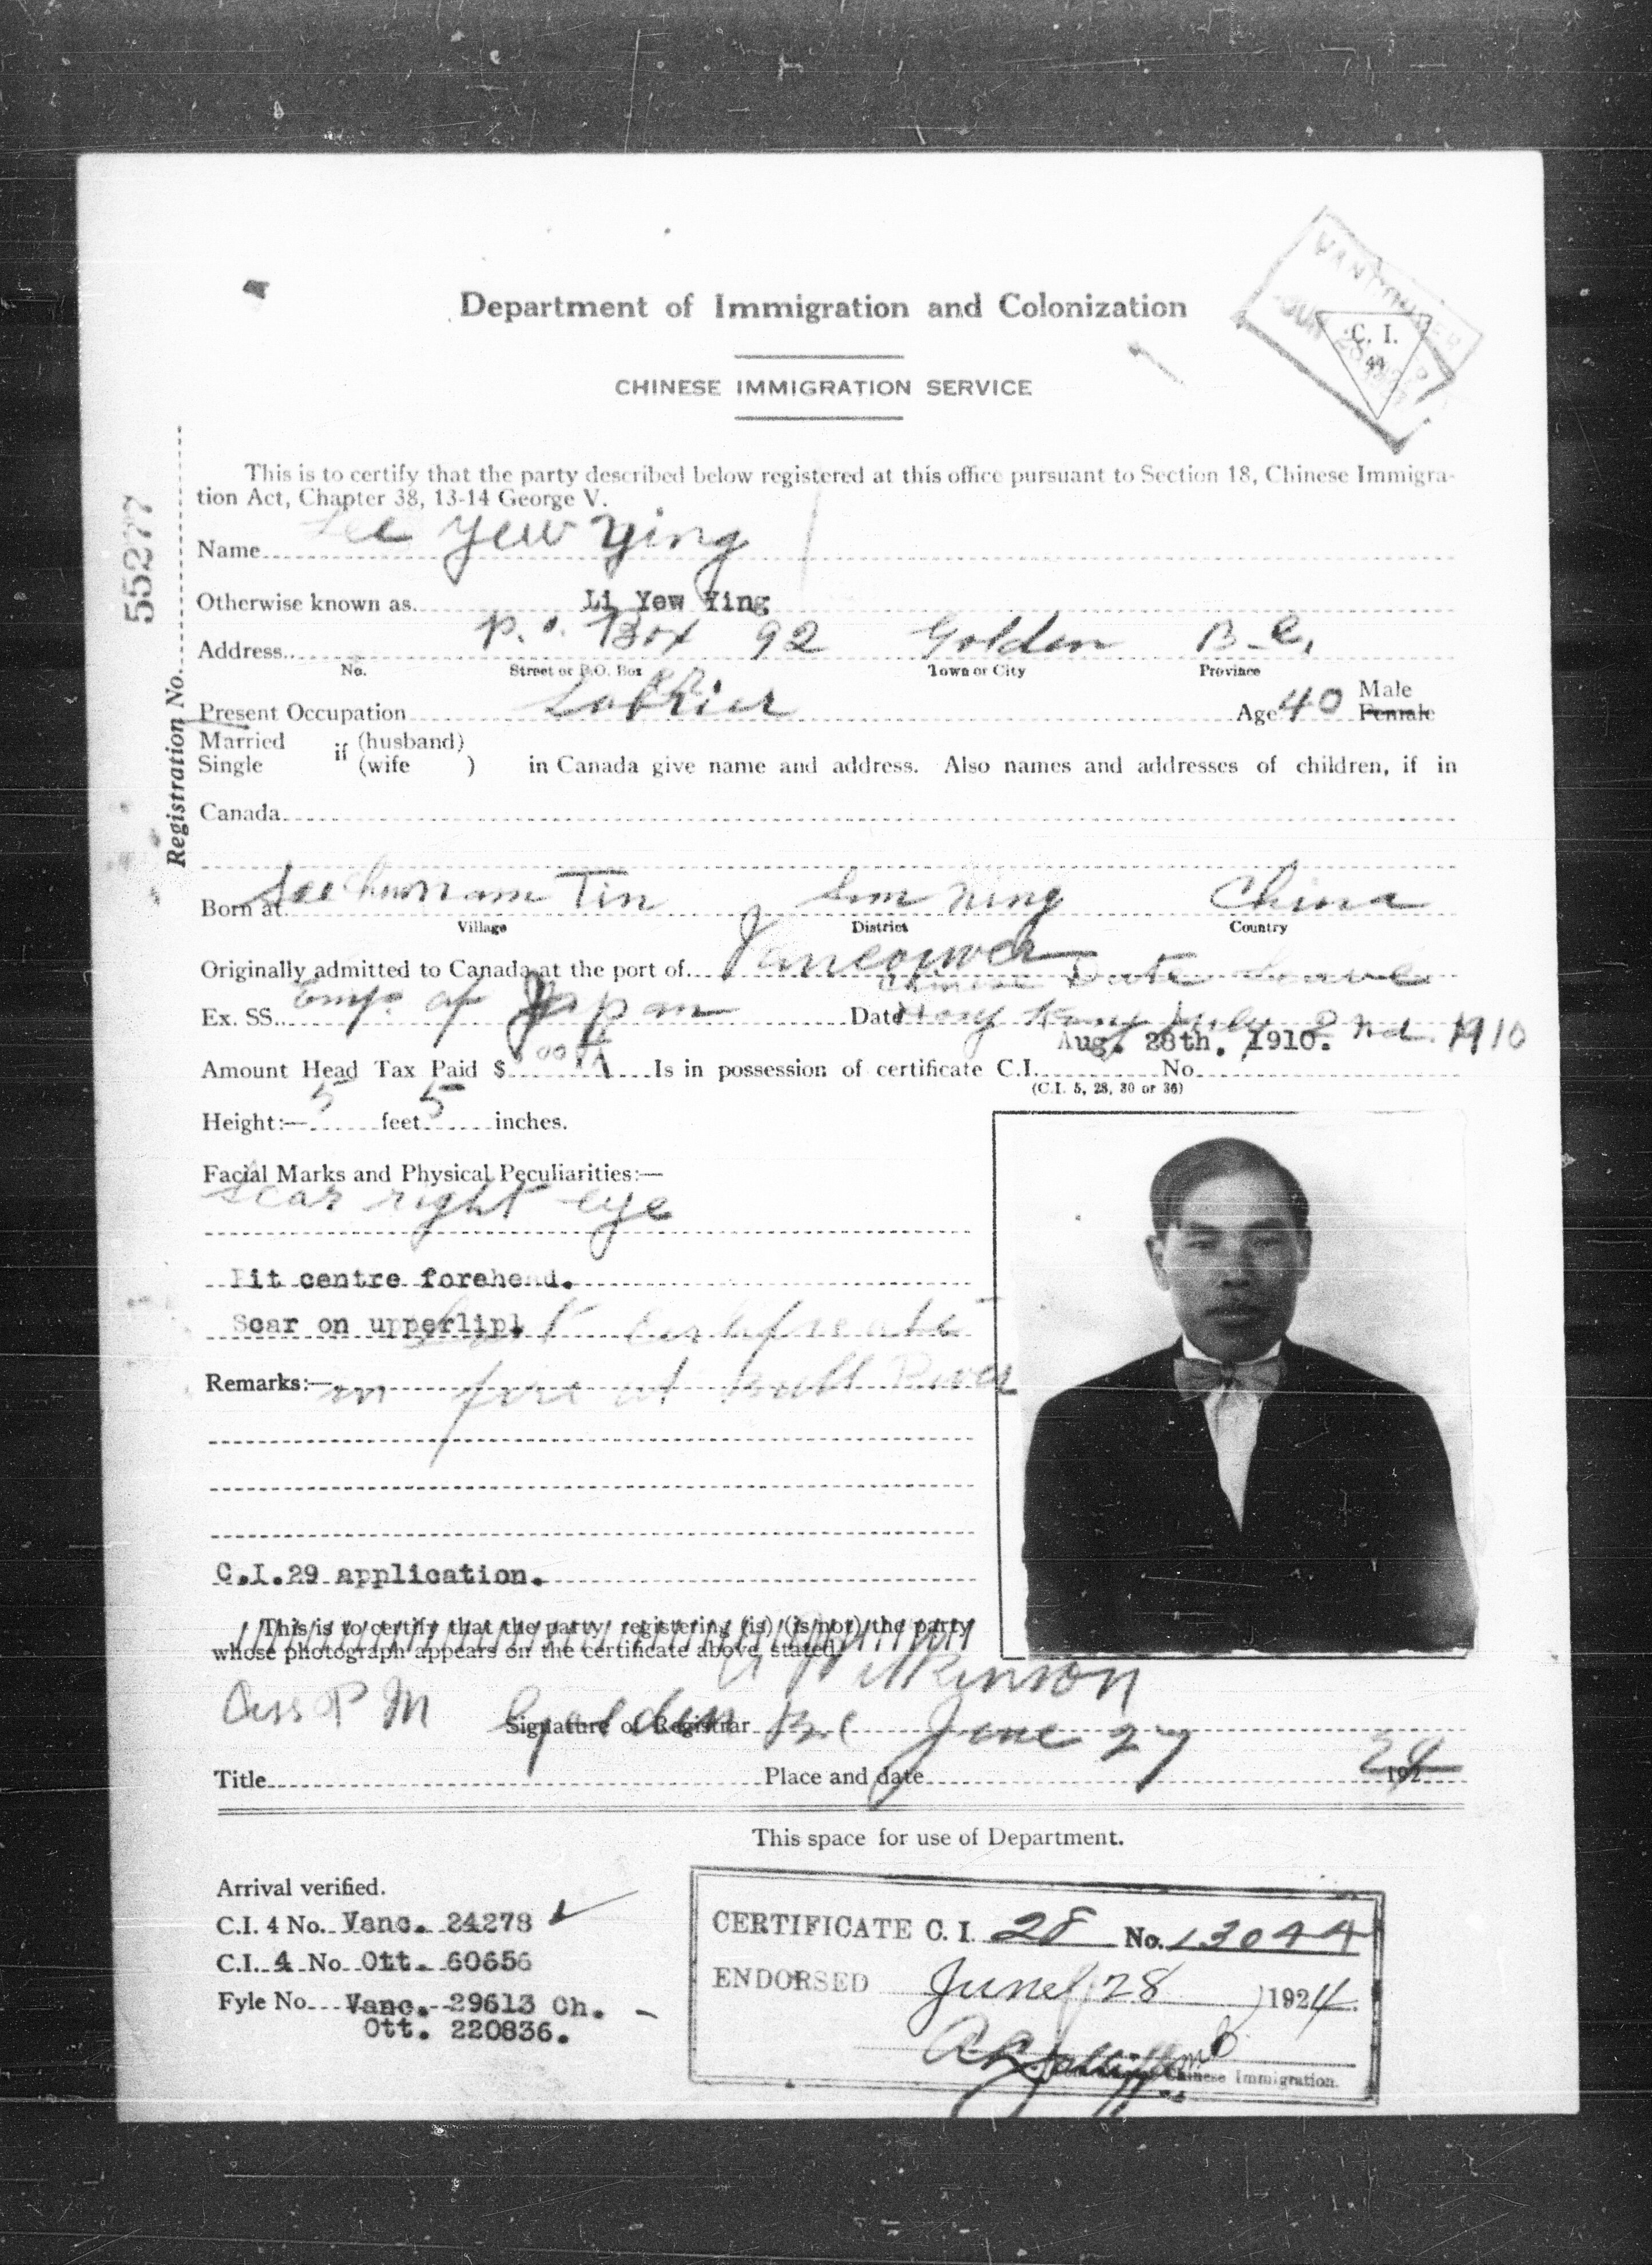 Department of Immigration and Colonization
CHINESE IMMIGRATION SERVICE
VANCOUVER
C. I.
44
This is to certify that the party described below registered at this office pursuant to Section 18, Chinese Immigra-
tion Act, Chapter 38, 13-14 George V.
Registration No. 55277
Name Lee Yew Ying
Otherwise known as Li Yew Ying
Address P.O. Box 92 Golden B.C.
No. Street or P.O. Box Town or City Province
Present Occupation Age 40 Male Female
Married
Single if (husband) (wife ) in Canada give name and address. Also names and addresses of children, if in
Canada
Born at Tin Sun Ning China
Village District Country
Originally admitted to Canada at the port of Vancouver
Chinese Date Leave
Ex. SS. Emp. of Japan Date Hong Kong July 2nd. 1910
Aug. 28th. 1910.
Amount Head Tax Paid $ Is in possession of certificate C.I. No.
(C.I. 5, 28, 30 or 36)
Height:— 5 feet 5 inches.
Facial Marks and Physical Peculiarities:—
Scar right eye
Pit centre forehead.
Scar on upperlip.
Lost certificate
Remarks:— in fire at Bull River
C.I.29 application.
This is to certify that the party registering (is) (is not) the party
whose photograph appears on the certificate above stated.
Wilkinson
Signature of Registrar
Ass P M Golden BC June 27 24
Title Place and date 192
This space for use of Department.
Arrival verified.
C.I. 4 No. Vanc. 24278
C.I. 4 No. Ott. 60656
Fyle No. Vanc. 29613 Ch.
Ott. 220836.
CERTIFICATE C. I. 28 No. 13044
ENDORSED June 28 1924.
Chinese Immigration.